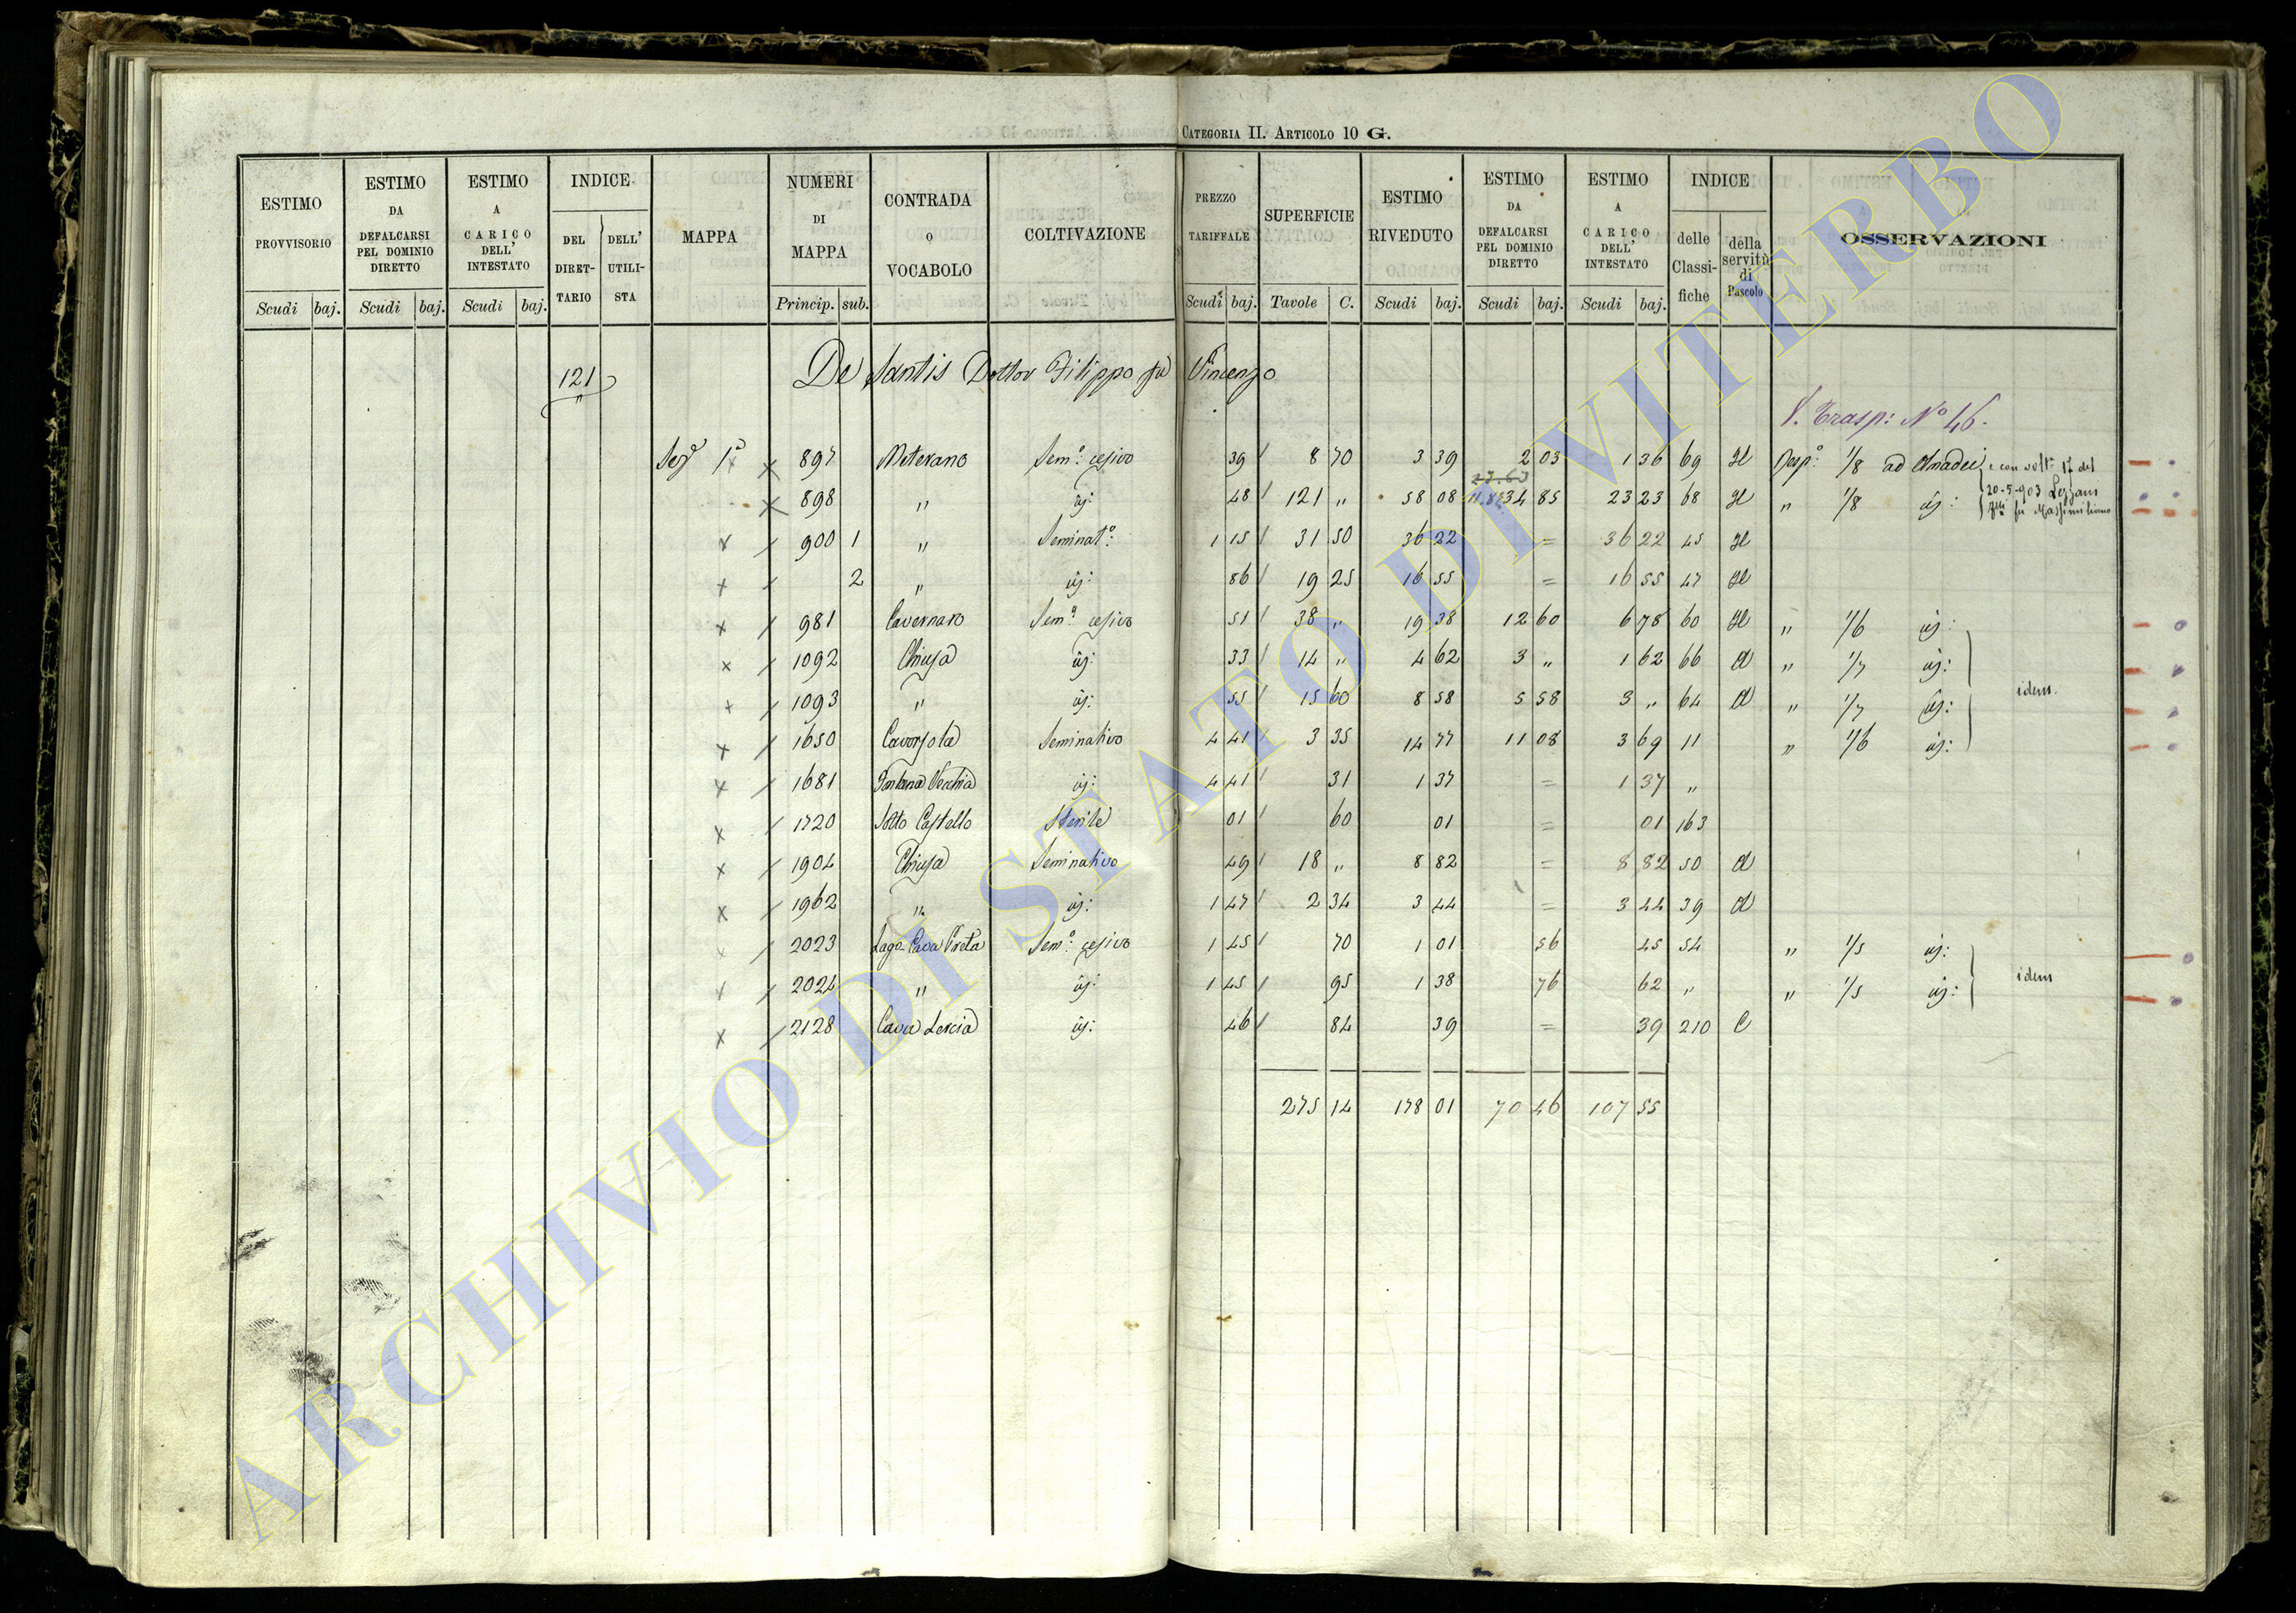 CATEGORIA II. ARTICOLO 10 G.
ESTIMO PROVVISORIO | ESTIMO DA DEFALCARSI PEL DOMINIO DIRETTO | ESTIMO A CARICO DELL' INTESTATO | INDICE | MAPPA | NUMERI DI MAPPA | CONTRADA O VOCABOLO | COLTIVAZIONE | PREZZO TARIFFALE | SUPERFICIE | ESTIMO RIVEDUTO | ESTIMO DA DEFALCARSI PEL DOMINIO DIRETTO | ESTIMO A CARICO DELL' INTESTATO | INDICE | OSSERVAZIONI
DEL DIRETTARIO | DELL' UTILISTA | delle Classifiche | della servitù di Pascolo
Scudi | baj. | Scudi | baj. | Scudi | baj. | Princip. | sub. | Scudi | baj. | Tavole | C. | Scudi | baj. | Scudi | baj. | Scudi | baj.
121 De Santis Dottor Filippo fu Vincenzo
"
V. Trasp: Nº 46.
Sezª 1ª x x 897 Sem.º cesivo 39 / 8 70 3 39 2 03 1 36 69 1/8 ad Amadei e con volt.
27.63
x 898 " id: 48 / 121 " 58 08 34 85 23 23 68 " 1/8 id: 20-5-903 fu Massimiliano
x / 900 1 " Seminat.º 1 15 / 31 50 36 22 = 36 22 45
x / 2 " id: 86 / 19 25 16 55 = 16 55 47
x / 981 Cavernaro Sem.º cesivo 51 / 38 " 19 38 12 60 6 78 60 " 1/6 id:
x / 1092 Chiusa id: 33 / 14 " 4 62 3 " 1 62 66 A " 1/7 id:
x / 1093 " id: 55 / 15 60 8 58 5 58 3 " 64 A " 1/7 id: idem.
x / 1650 Seminativo 4 41 / 3 35 14 77 11 08 3 69 11 " 1/6 id:
x / 1681 Fontana Vecchia id: 4 41 / 31 1 37 = 1 37 "
x / 1720 Sotto Castello Sterile 01 / 60 01 = 01 163
x / 1904 Chiusa Seminativo 49 / 18 " 8 82 = 8 82 50 A
x / 1962 " id: 1 47 / 2 34 3 44 = 3 44 39 A
x / 2023 Lago Cava Sem.º cesivo 1 45 / 70 1 01 56 45 54 " 1/5 id:
/ / 2024 " id: 1 45 / 95 1 38 76 62 " " 1/5 id: idem
x / 2128 Cava id: 46 / 84 39 = 39 210 C
275 14 178 01 70 46 107 55
ARCHIVIO DI STATO DI VITERBO